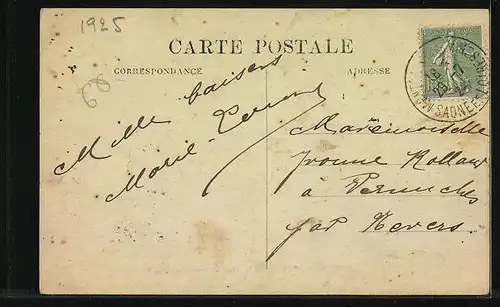 1925
CARTE POSTALE
CORRESPONDANCE
ADRESSE
68
Mille baisers
Marie-
Mademoiselle
Yvonne Rolland
à
par Nevers.
SAONE